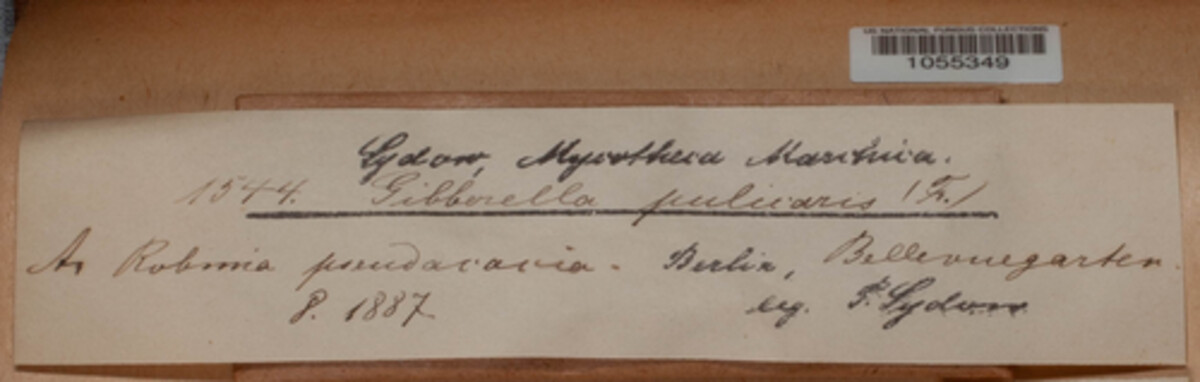 US NATIONAL FUNGUS COLLECTIONS
1055349
Sydow, Mycotheca Marchica.
1544. Gibberella pulicaris (Fr.)
An Robinia pseudacacia. Berlin, Bellevuegarten.
8. 1887 leg. P. Sydow